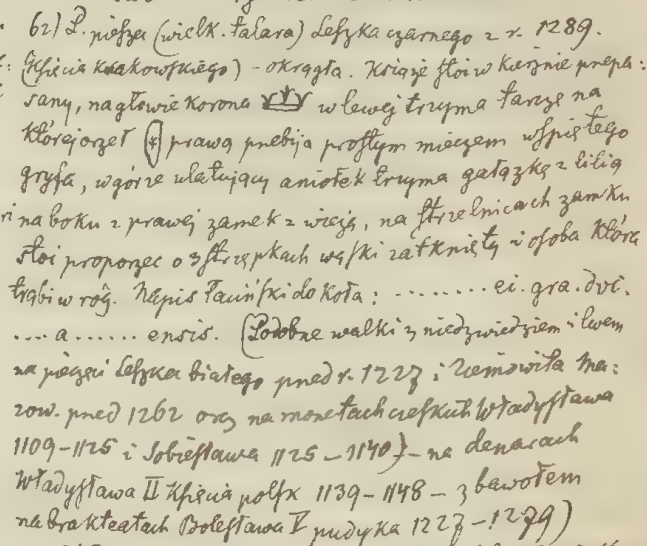 62) P. piesza (wielk. talara) Leszka czarnego z r. 1289.
(Księcia krakowskiego) - okrągła. Książę stoi w kierznie przepa:
sany, na głowie korona w lewej trzyma tarczę na
której orzeł prawą przebija prostym mieczem wspiętego
gryfa, w górze ulatujący aniołek trzyma gałązkę z lilią
na boku z prawej zamek z wieżą, na strzelnicach zamku
stoi proporzec o 3 strzępkach wąski zatknięty i osoba która
trąbi w róg. Napis łaciński do koła: ........ ei. gra. dvc.
... a ...... ensis. (Podobne walki z niedzwiedziem i lwem
na pieczęci Leszka białego przed r. 1227 i Ziemowita Ma:
zow. przed 1262 oraz na monetach czeskich Władysława
1109-1125 i Sobiesława 1125-1140) - na denarach
Władysława II Księcia polsk 1139-1148 - z bawołem
na brakteatach Bolesława V pudyka 1227-1279)